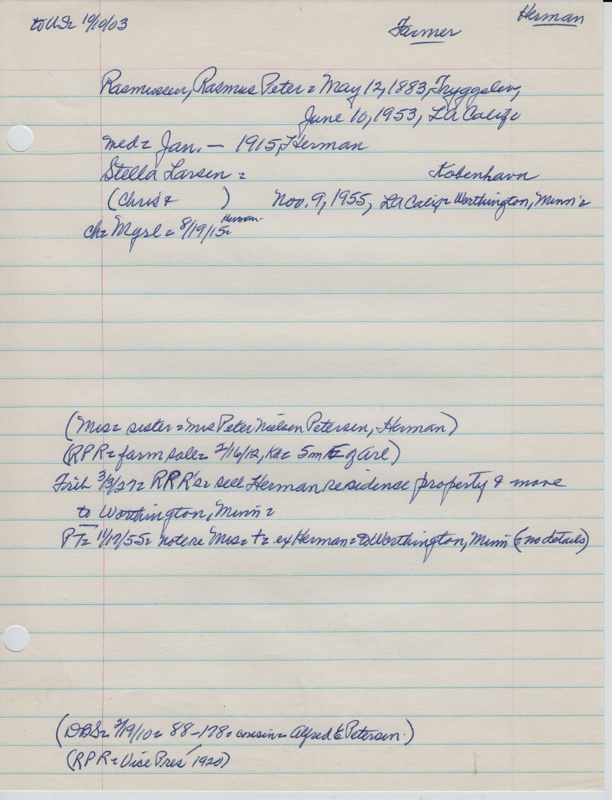 to US= 10/10/03
Farmer
Herman
Rasmussen, Rasmus Peter = May 12, 1883, Tryggelev,
June 10, 1953, LA Calif=
med= Jan. — 1915, Herman
Stella Larsen = Kobenhavn
(Chris + ) Nov. 9, 1955, LA Calif= Worthington, Minn=
ch= Myrl = 8/19/15= Herman
(Mrs= sister = Mrs Peter Nielsen Petersen, Herman)
(RPR = farm sale= 2/16/12, Ke= 5 m E of Arl)
3/3/27= RPR's= sell Herman residence property & move
to Worthington, Minn=
PT= 11/17/55= note re Mrs= += ex Herman= to Worthington, Minn (= no details)
(DBS= 2/19/10= 88-178= cousin= Alfred E Petersen.)
(RPR = Vice Pres' 1920)